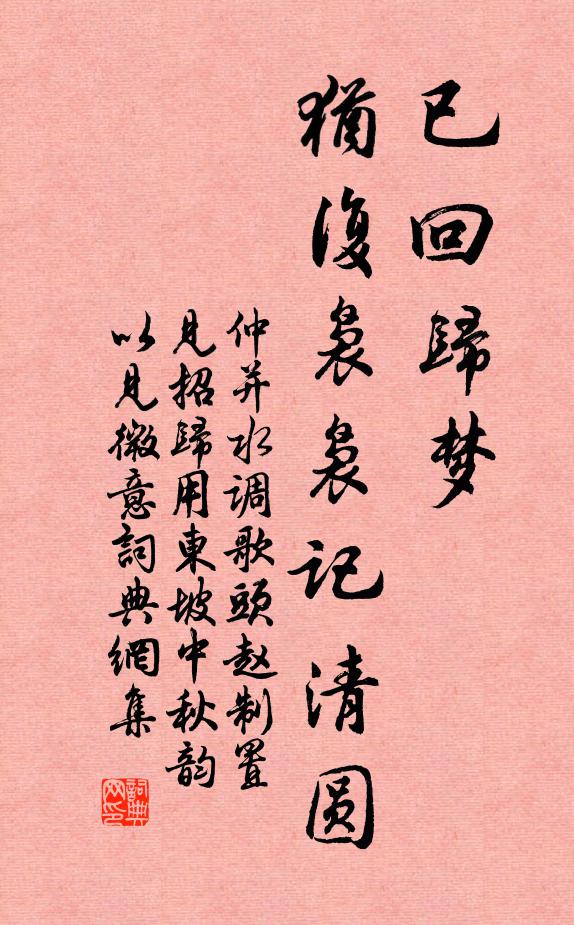 已回歸梦
猶復裊裊记清圆
仲并水调歌頭赵制置
見招歸用東坡中秋韵
以見微意詞典網集
詞典网印